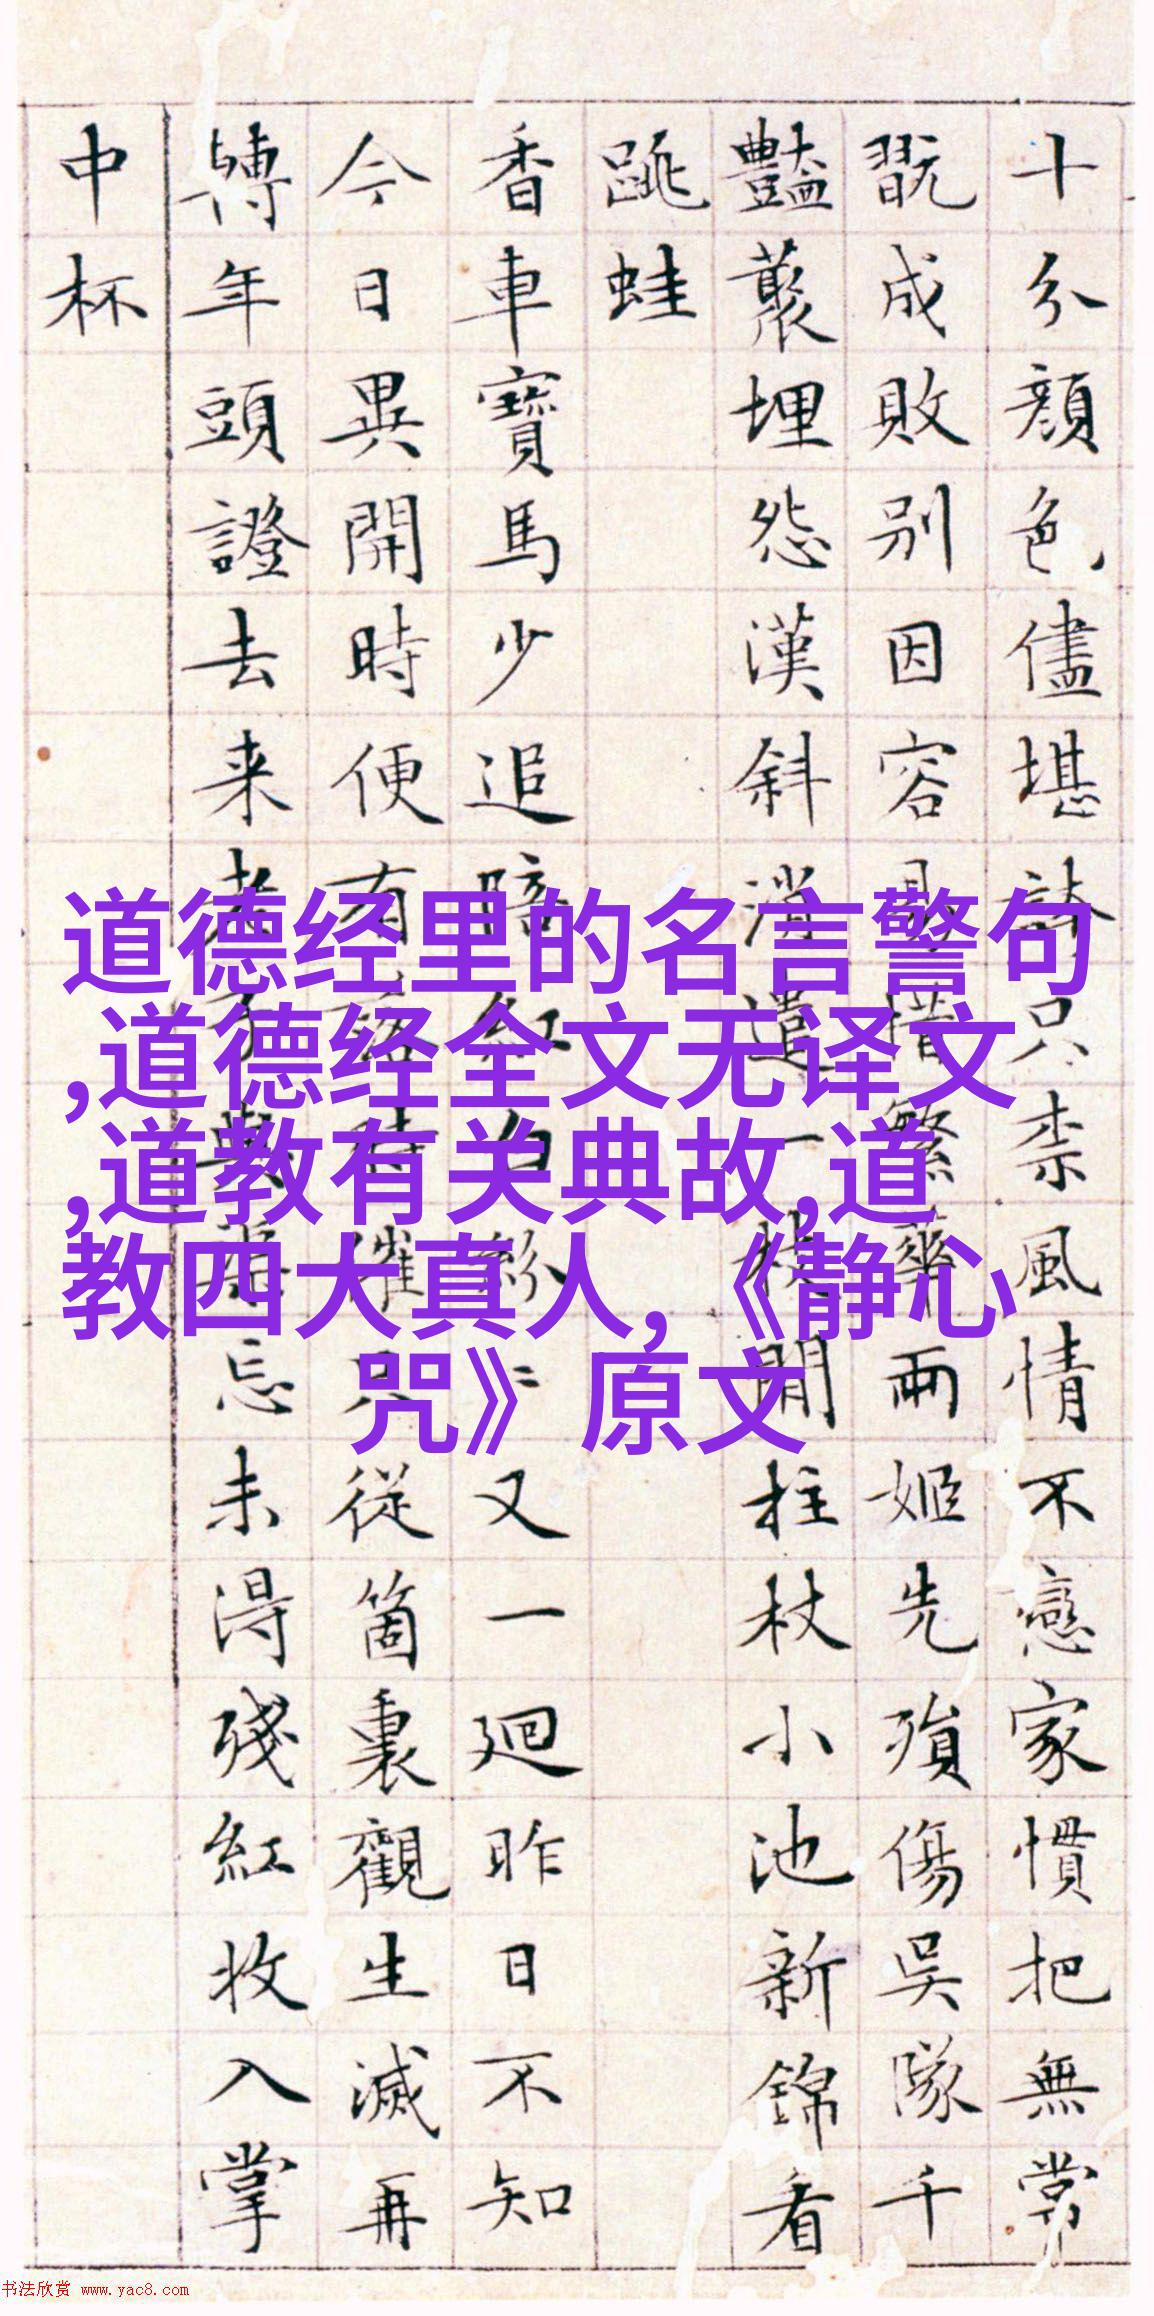 十分顏色儘堪誇只柰風情不戀家慣把無常
翫成敗別因容易惜繁華兩姬先殞傷吳隊千
豔叢埋怨漢斜消遣一枝閒柱杖小池新錦看
跳蛙
香車寶馬少追陪紅白紛〻又一廻昨日不知
今日異開時便有落時催只從箇裏觀生滅再
轉年頭證去来老可與忘未得殘紅收入掌
中杯
道德经里的名言警句
,道德经全文无译文
,道教有关典故,道
教四大真人,《静心
咒》原文
书法欣赏 www.yac8.com